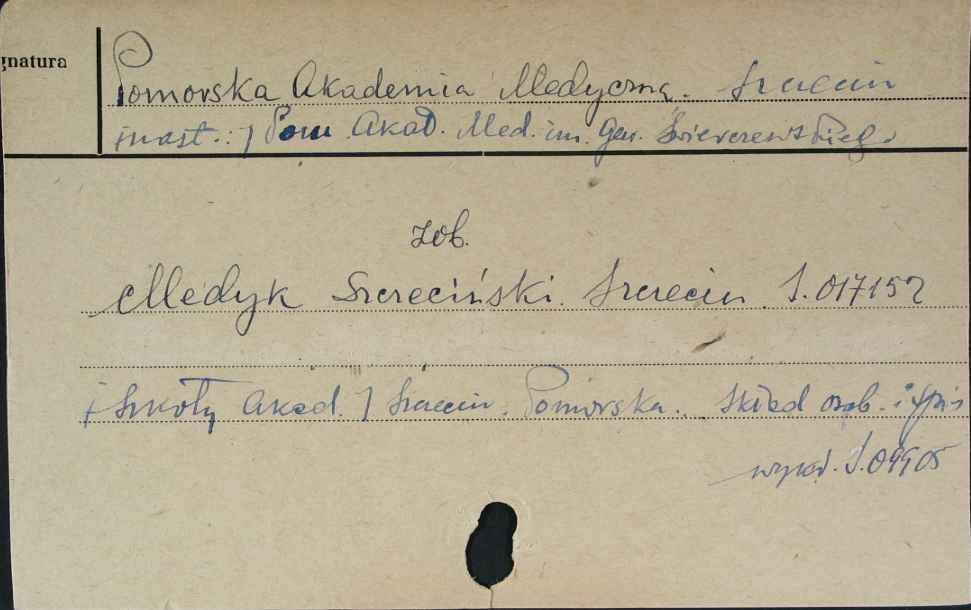 gnatura
Pomorska Akademia Medyczna. Szczecin
nast.: / Pom. Akad. Med. im. Gen. Świerczewskieg.
zob.
Medyk Szczeciński. Szczecin. S. 017152
/Szkoły Akad./ Szczecin. Pomorska. Skład osob. i spis
wykł. S. 09905